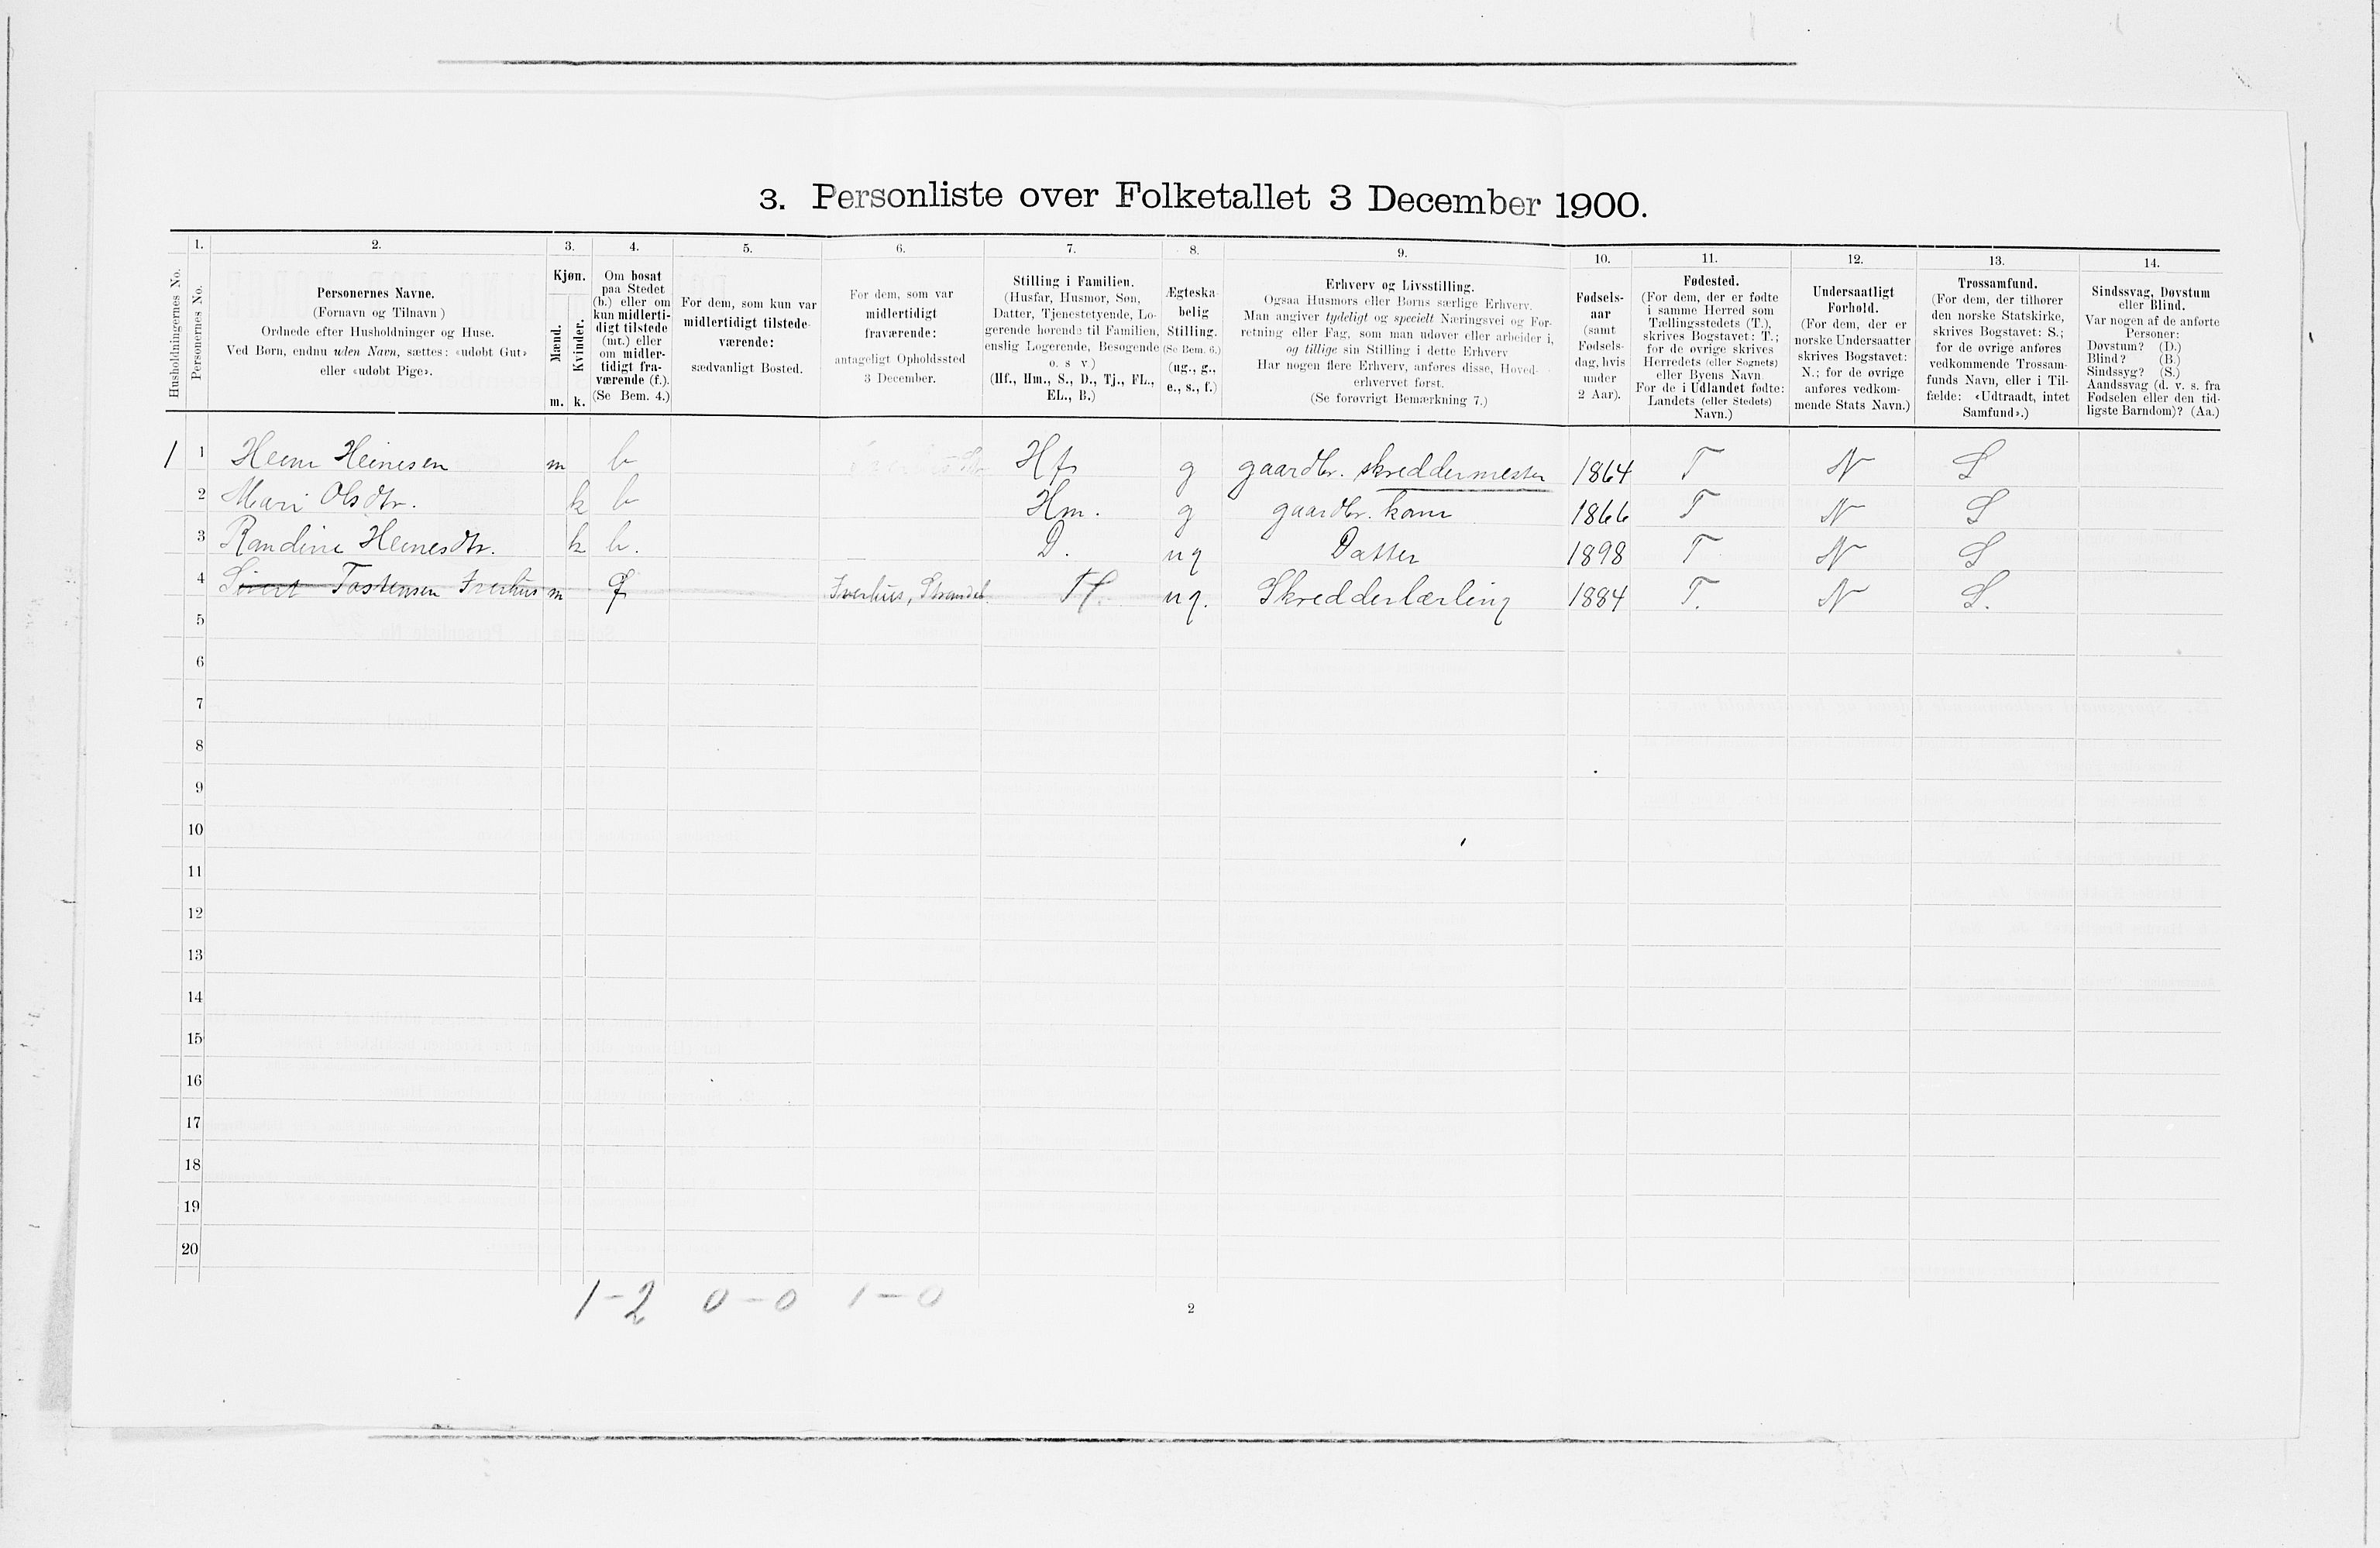 3. Personliste over Folketallet 3 December 1900.
1. 2. 3. 4. 5. 6. 7. 8. 9. 10. 11. 12. 13. 14.
Husholdningernes No.
Personernes No.
Personernes Navne.
(Fornavn og Tilnavn)
Ordnede efter Husholdninger og Huse.
Ved Børn, endnu uden Navn, sættes: «udøbt Gut»
eller «udøbt Pige».
Kjøn.
Mænd.
Kvinder.
m. k.
Om bosat
paa Stedet
(b.) eller om
kun midlerti-
digt tilstede
(mt.) eller
om midler-
tidigt fra-
værende (f.).
(Se Bem. 4.)
For dem, som kun var
midlertidigt tilstede-
værende:
sædvanligt Bosted.
For dem, som var
midlertidigt
fraværende:
antageligt Opholdssted
3 December.
Stilling i Familien.
(Husfar, Husmor, Søn,
Datter, Tjenestetyende, Lo-
gerende hørende til Familien,
enslig Logerende, Besøgende
o. s v)
(Hf., Hm., S., D., Tj., FL.,
EL., B.)
Ægteska-
belig
Stilling.
(Se Bem. 6.)
(ug., g.,
e., s., f.)
Erhverv og Livsstilling.
Ogsaa Husmors eller Børns særlige Erhverv.
Man angiver tydeligt og specielt Næringsvei og For-
retning eller Fag, som man udøver eller arbeider i,
og tillige sin Stilling i dette Erhverv
Har nogen flere Erhverv, anføres disse, Hoved-
erhvervet først.
(Se forøvrigt Bemærkning 7.)
Fødsels-
aar
(samt
Fødsels-
dag, hvis
under
2 Aar).
Fødested.
(For dem, der er fødte
i samme Herred som
Tællingsstedets (T.),
skrives Bogstavet: T.;
for de øvrige skrives
Herredets (eller Sognets)
eller Byens Navn
For de i Udlandet fødte:
Landets (eller Stedets)
Navn.)
Undersaatligt
Forhold.
(For dem, der er
norske Undersaatter
skrives Bogstavet:
N.; for de øvrige
anføres vedkom-
mende Stats Navn.)
Trossamfund.
(For dem, der tilhører
den norske Statskirke,
skrives Bogstavet: S.;
for de øvrige anføres
vedkommende Trossam-
funds Navn, eller i Til-
fælde: «Udtraadt, intet
Samfund».)
Sindssvag, Døvstum
eller Blind.
Var nogen af de anførte
Personer:
Døvstum? (D.)
Blind? (B.)
Sindssyg? (S.)
Aandssvag (d. v. s. fra
Fødselen eller den tid-
ligste Barndom)? (Aa.)
1 1 Heine Heinesen m b Hf. g gaardbr. skreddermester 1864 T N S
2 Mari Olsdtr. k b Hm. g gaardbr. kone 1866 T N S
3 Randine Heinesdtr. k b. D. ug Datter 1898 T N S
4 Sivert Tostensen Iverhus m f Iverhus, ug. Skredderlærling 1884 T. N S.
5
6
7
8
9
10
11
12
13
14
15
16
17
18
19
20
1-2 0-0 1-0
2